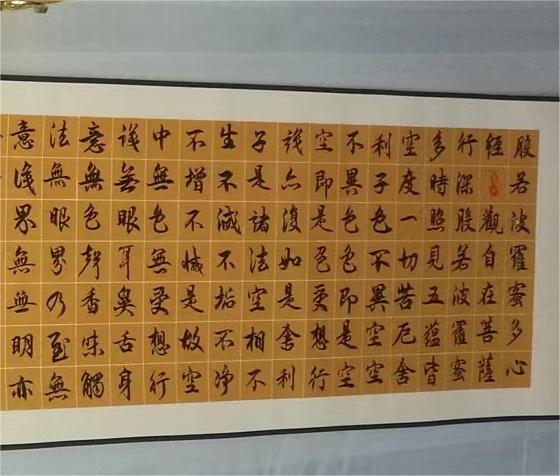 般若波羅蜜多心
經觀自在菩薩
行深般若波羅蜜
多時照見五蘊皆
空度一切苦厄舍
利子色不異空空
不異色色即是空
空即是色受想行
識亦復如是舍利
子是諸法空相不
生不滅不垢不淨
不增不減是故空
中無色無受想行
識無眼耳鼻舌身
意無色聲香味觸
法無眼界乃至無
意識界無無明亦